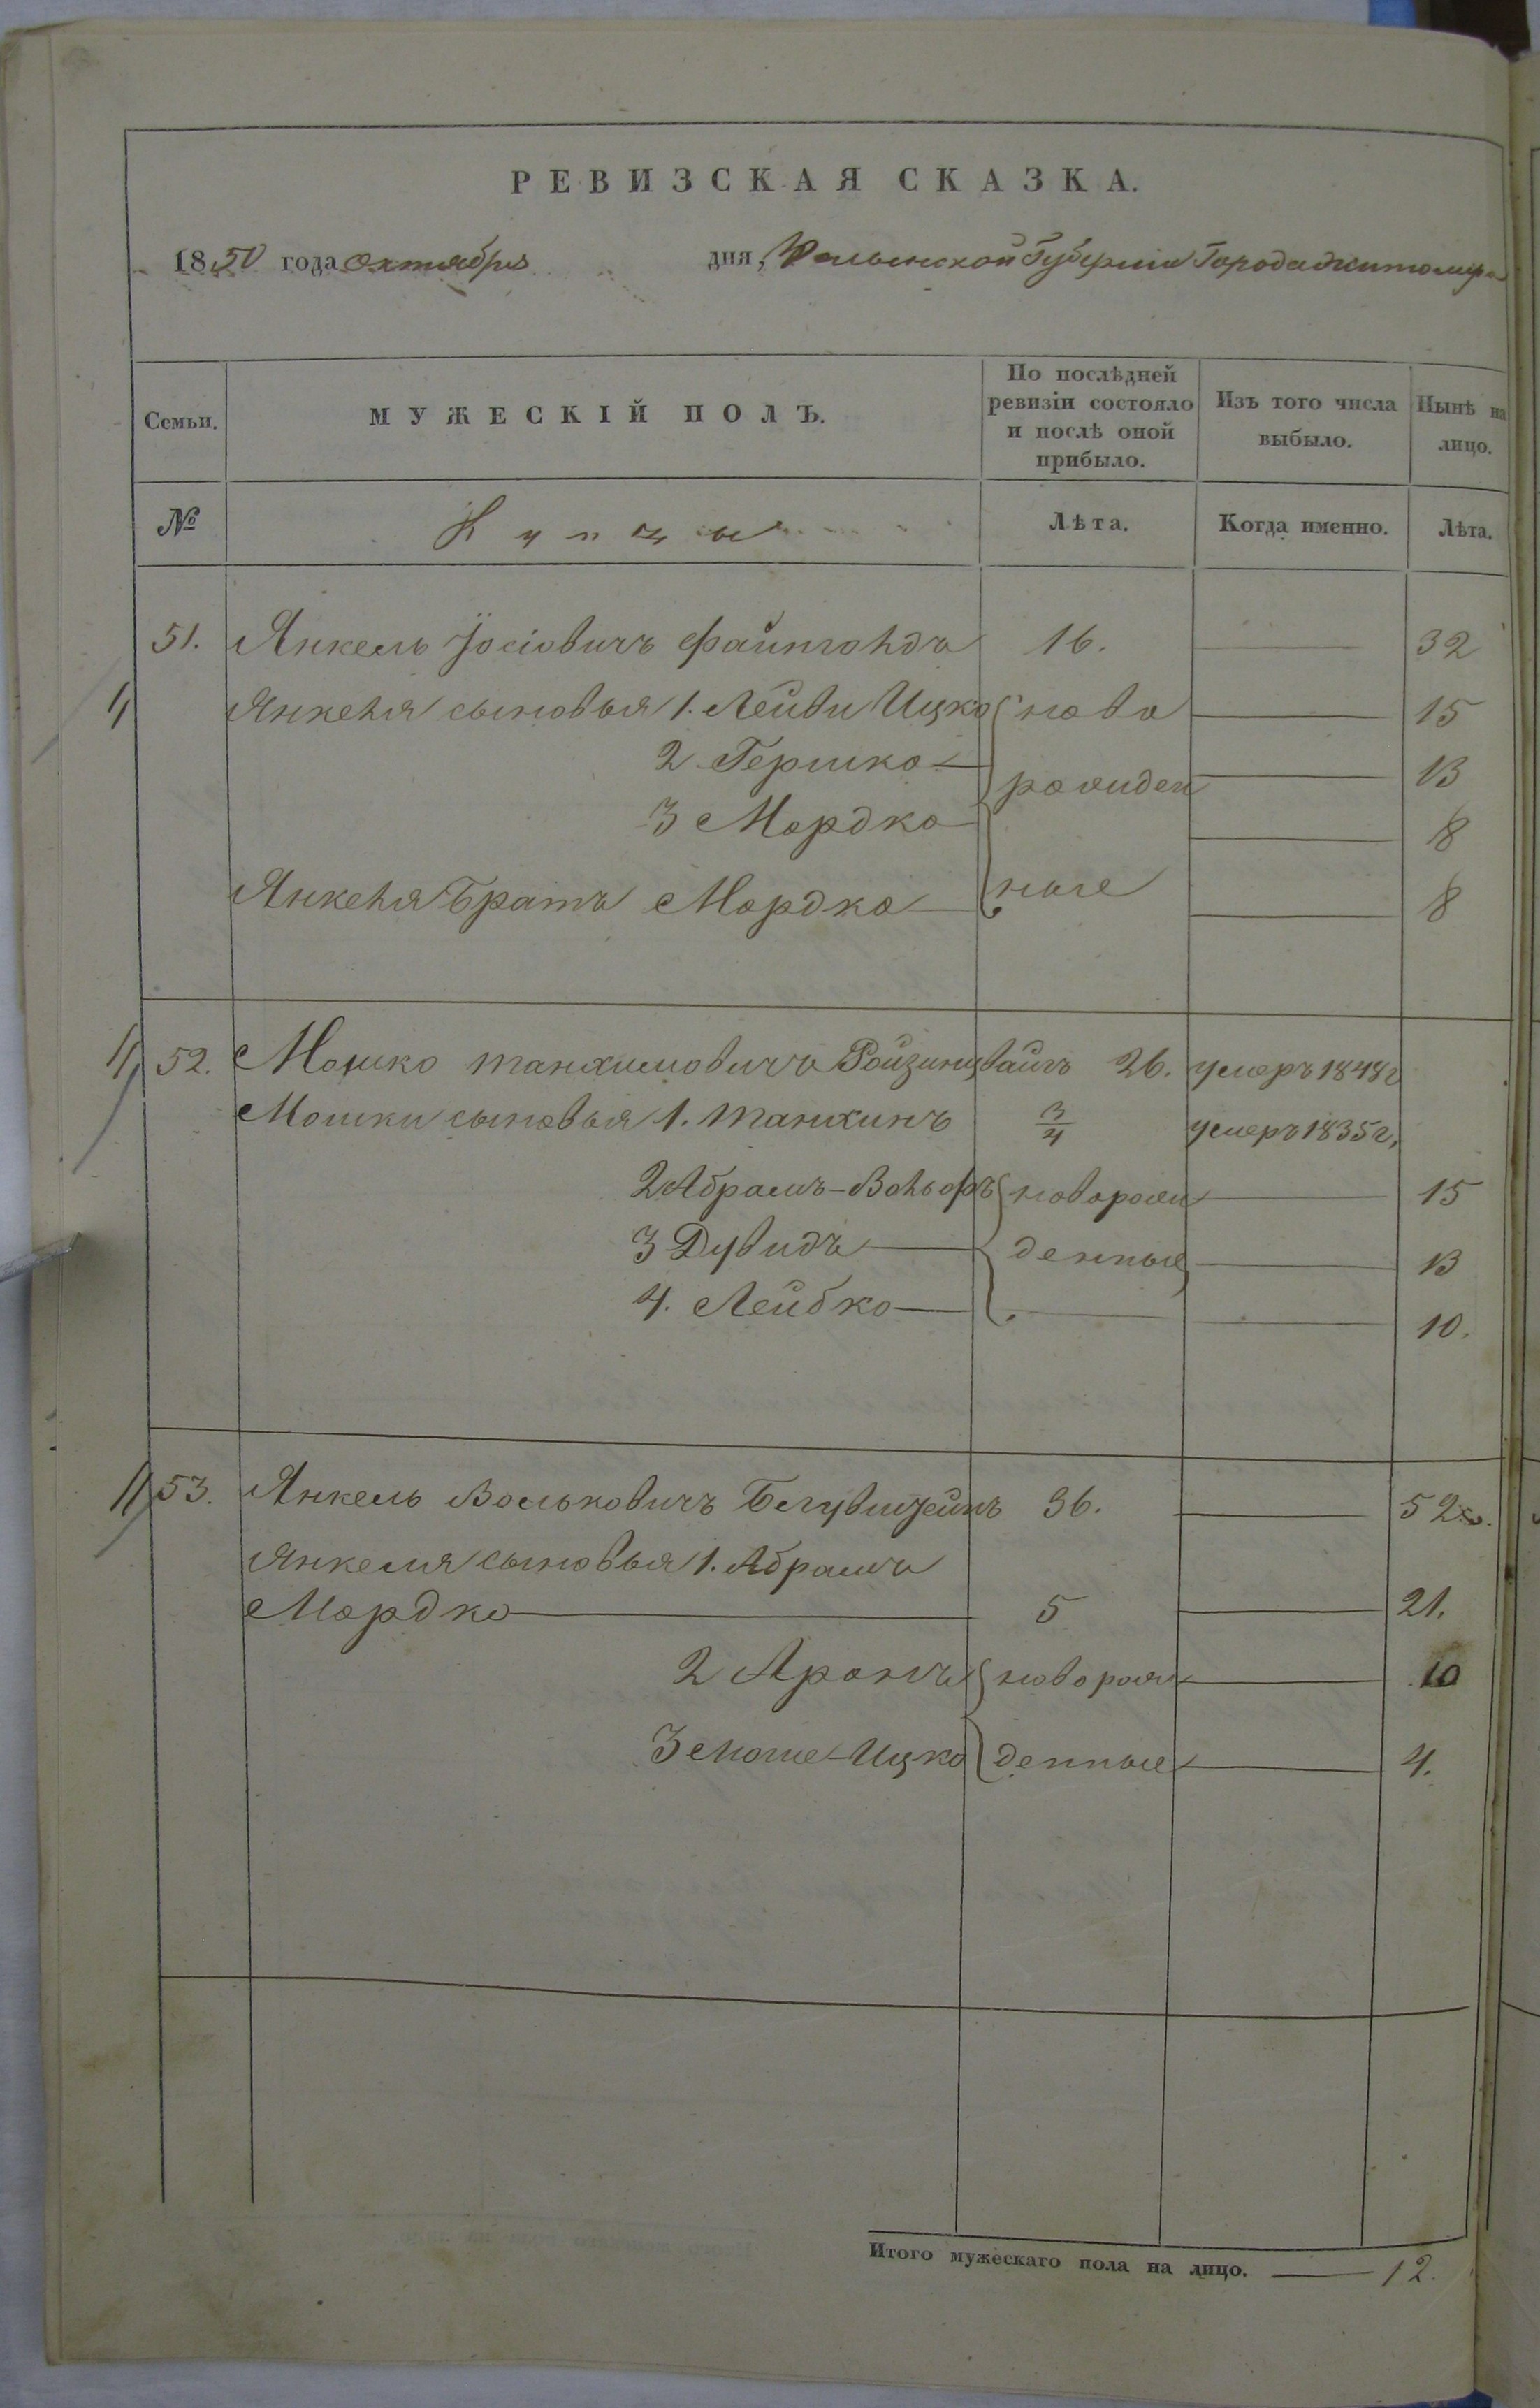 РЕВИЗСКАЯ СКАЗКА.
1850 года октября дня, Волынской Губернии Города Житомира
Семьи. МУЖЕСКІЙ ПОЛЪ. По послѣдней ревизіи состояло и послѣ оной прибыло. Изъ того числа выбыло. Нынѣ на лицо.
№ Купцы Лѣта. Когда именно. Лѣта.
51. Янкель Іосіовичъ Файнгольдъ 16. 32
Янкеля сыновья 1. Лейви Ицко ново 15
2 Гершко 13
рожден
3 Мордко 8
Янкеля Братъ Мордко ные 8
52. Мошко Танхимовичъ Ройзинцвайгъ 26. умеръ 1848г
Мошки сыновья 1. Танхинъ 3/4 умеръ 1835г.
2 Абрамъ-Вольфъ новорож 15
3 Дувидъ денные 13
4. Лейбко 10.
53. Янкель Вольковичъ 36. 52
Янкеля сыновья 1. Абрамъ
Мордко 5 21.
2 Аронъ новорож 10
3 Моше-Ицко денные 4.
Итого мужескаго пола на лицо. 12.